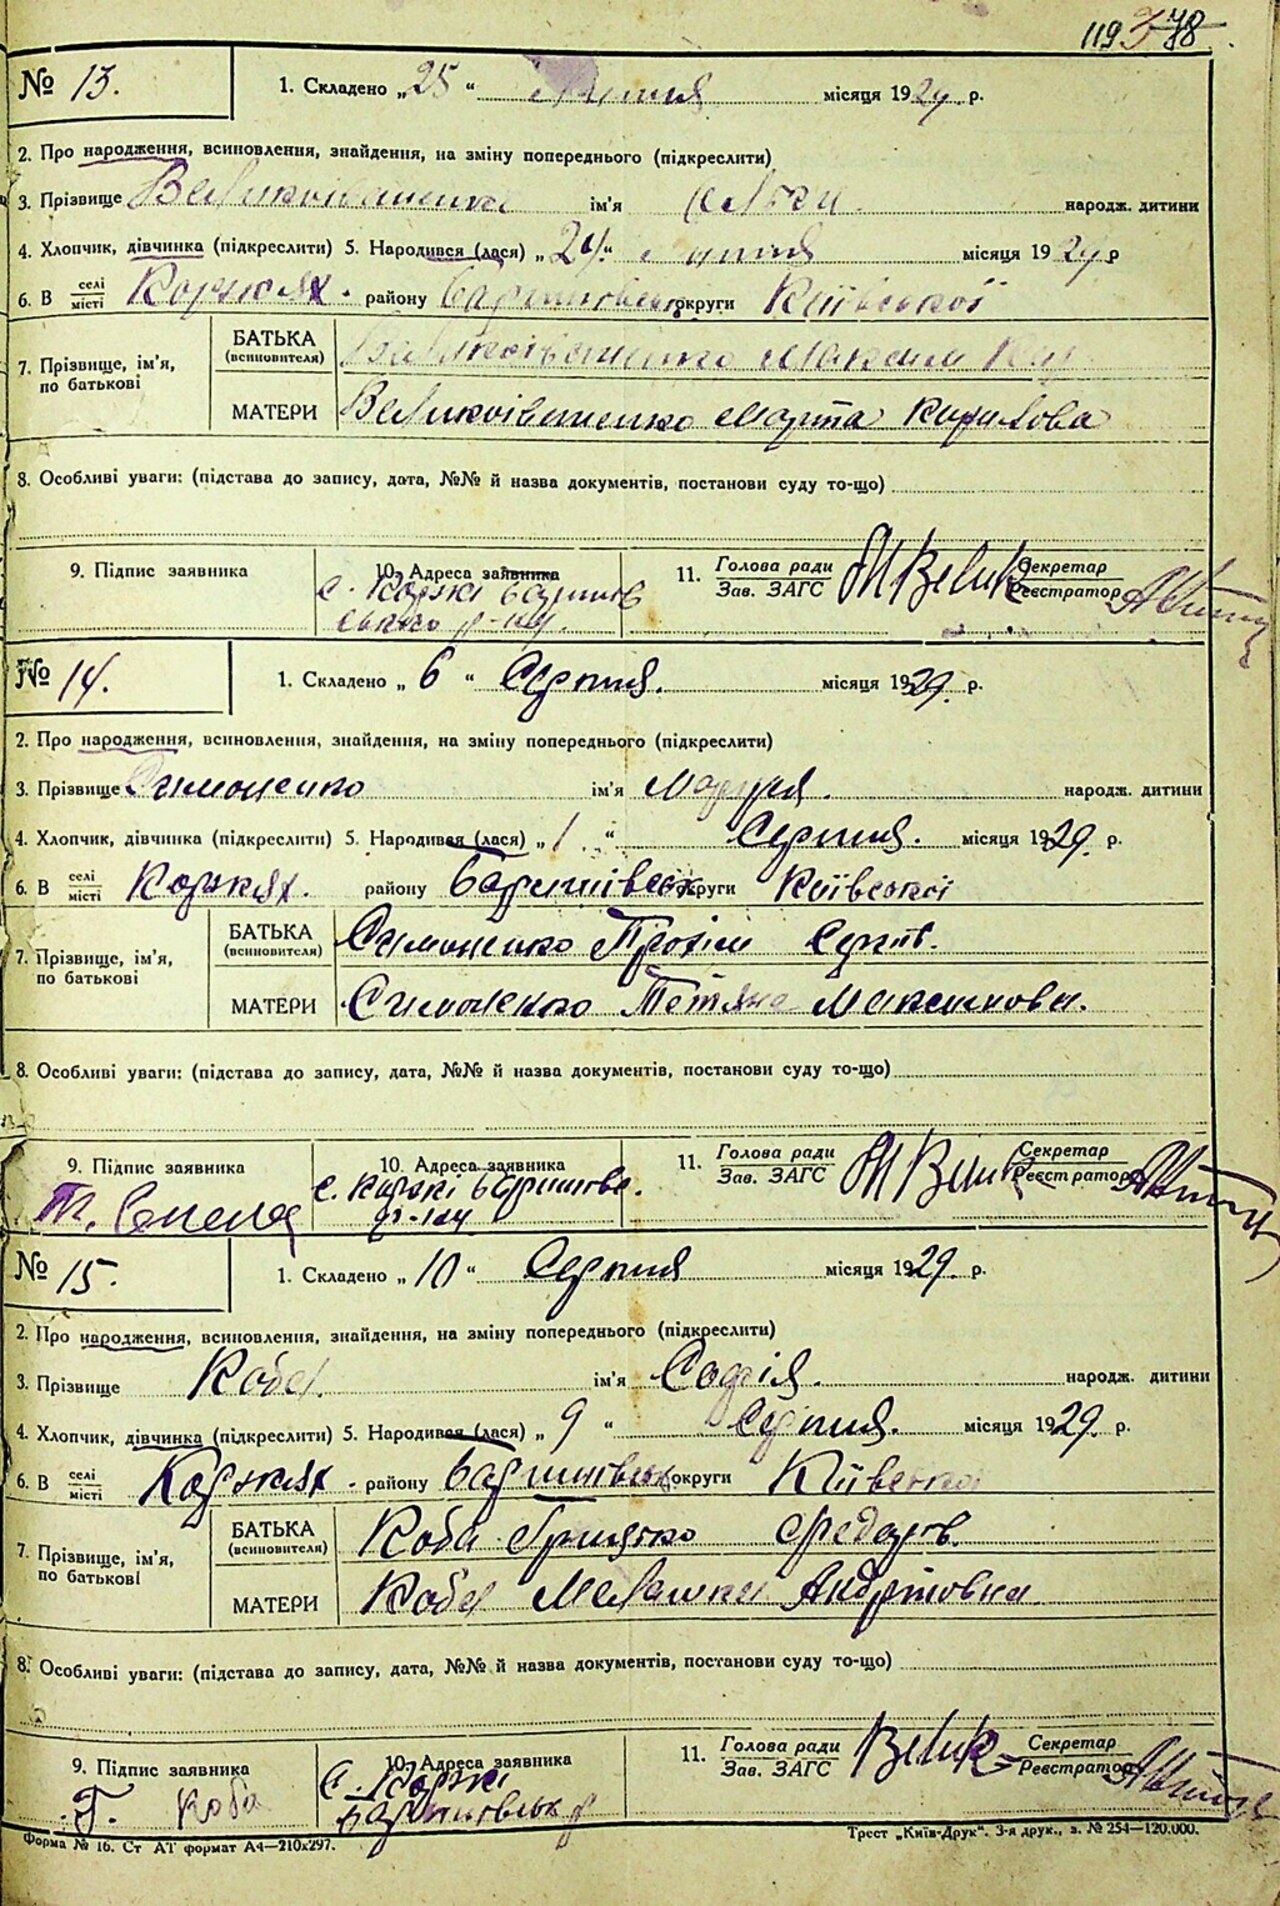 119 378
№ 13. 1. Складено „25“ Липня місяця 1929. р.
2. Про народження, всиновлення, знайдення, на зміну попереднього (підкреслити)
3. Прізвище Великоіваненко ім'я народж. дитини
4. Хлопчик, дівчинка (підкреслити) 5. Народився (лася) „24.“ Липня місяця 1929 р
6. В селі/місті Коржях. району Баришівськ округи Київської
7. Прізвище, ім'я, по батькові
БАТЬКА (всиновителя) Великоіваненко Максим
МАТЕРИ Великоіваненко Марта Кирилова
8. Особливі уваги: (підстава до запису, дата, №№ й назва документів, постанови суду то-що)
9. Підпис заявника 10. Адреса заявника 11. Голова ради/Зав. ЗАГС Секретар/Реєстратор
с. Коржі Баришів
ського р-ну.
№ 14. 1. Складено „6“ Серпня. місяця 1929. р.
2. Про народження, всиновлення, знайдення, на зміну попереднього (підкреслити)
3. Прізвище Симоненко ім'я Марія. народж. дитини
4. Хлопчик, дівчинка (підкреслити) 5. Народився (лася) „1.“ Серпня. місяця 1929. р.
6. В селі/місті Коржях. району Баришівськ округи Київської
7. Прізвище, ім'я, по батькові
БАТЬКА (всиновителя) Симоненко Трохим Сергіїв.
МАТЕРИ Симоненко Тетяна Максимова.
8. Особливі уваги: (підстава до запису, дата, №№ й назва документів, постанови суду то-що)
9. Підпис заявника 10. Адреса заявника 11. Голова ради/Зав. ЗАГС Секретар/Реєстратор
с. Коржі Баришівс.
р-ну
№ 15. 1. Складено „10“ Серпня місяця 1929. р.
2. Про народження, всиновлення, знайдення, на зміну попереднього (підкреслити)
3. Прізвище Коба. ім'я Софія. народж. дитини
4. Хлопчик, дівчинка (підкреслити) 5. Народився (лася) „9“ Серпня. місяця 1929. р.
6. В селі/місті Коржях. району Баришівськ округи Київська
7. Прізвище, ім'я, по батькові
БАТЬКА (всиновителя) Коба Грицько Федорів.
МАТЕРИ Коба Мелашка Андріївна
8. Особливі уваги: (підстава до запису, дата, №№ й назва документів, постанови суду то-що)
9. Підпис заявника 10. Адреса заявника 11. Голова ради/Зав. ЗАГС Велик Секретар/Реєстратор
Г. Коба с. Коржі
Баришівськ р
Форма № 16. Ст АТ формат А4—210х297. Трест „Київ-Друк“. 3-я друк., з. № 254—120.000.